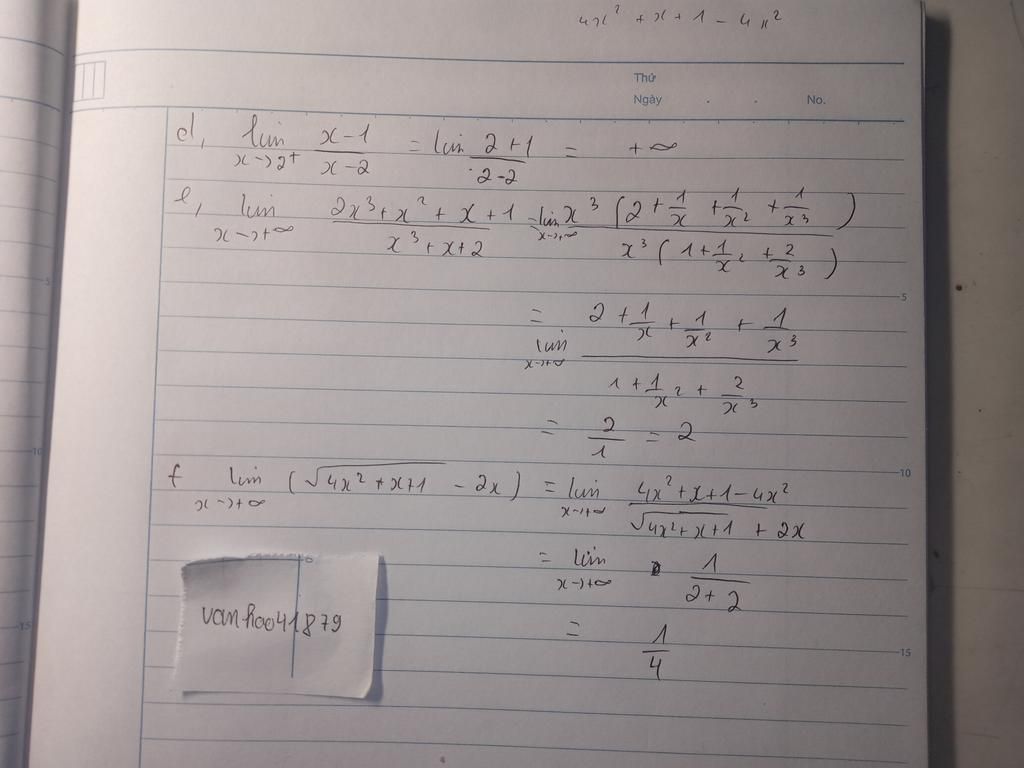 4x² + x + 1 - 4x²
Thứ
Ngày . . No.
d, lim x→2⁺ (x-1)/(x-2) = lim (2+1)/(2-2) = +∞
e, lim x→+∞ (2x³+x²+x+1)/(x³+x+2) = lim x→+∞ x³(2+1/x+1/x²+1/x³)/x³(1+1/x²+2/x³)
5
= lim x→+∞ (2+1/x+1/x²+1/x³)/(1+1/x²+2/x³)
= 2/1 = 2
10
f lim x→+∞ (√(4x²+x+1) - 2x) = lim x→+∞ (4x²+x+1-4x²)/(√(4x²+x+1) + 2x)
= lim x→+∞ 1/(2+2)
= 1/4
15
vanhao041879